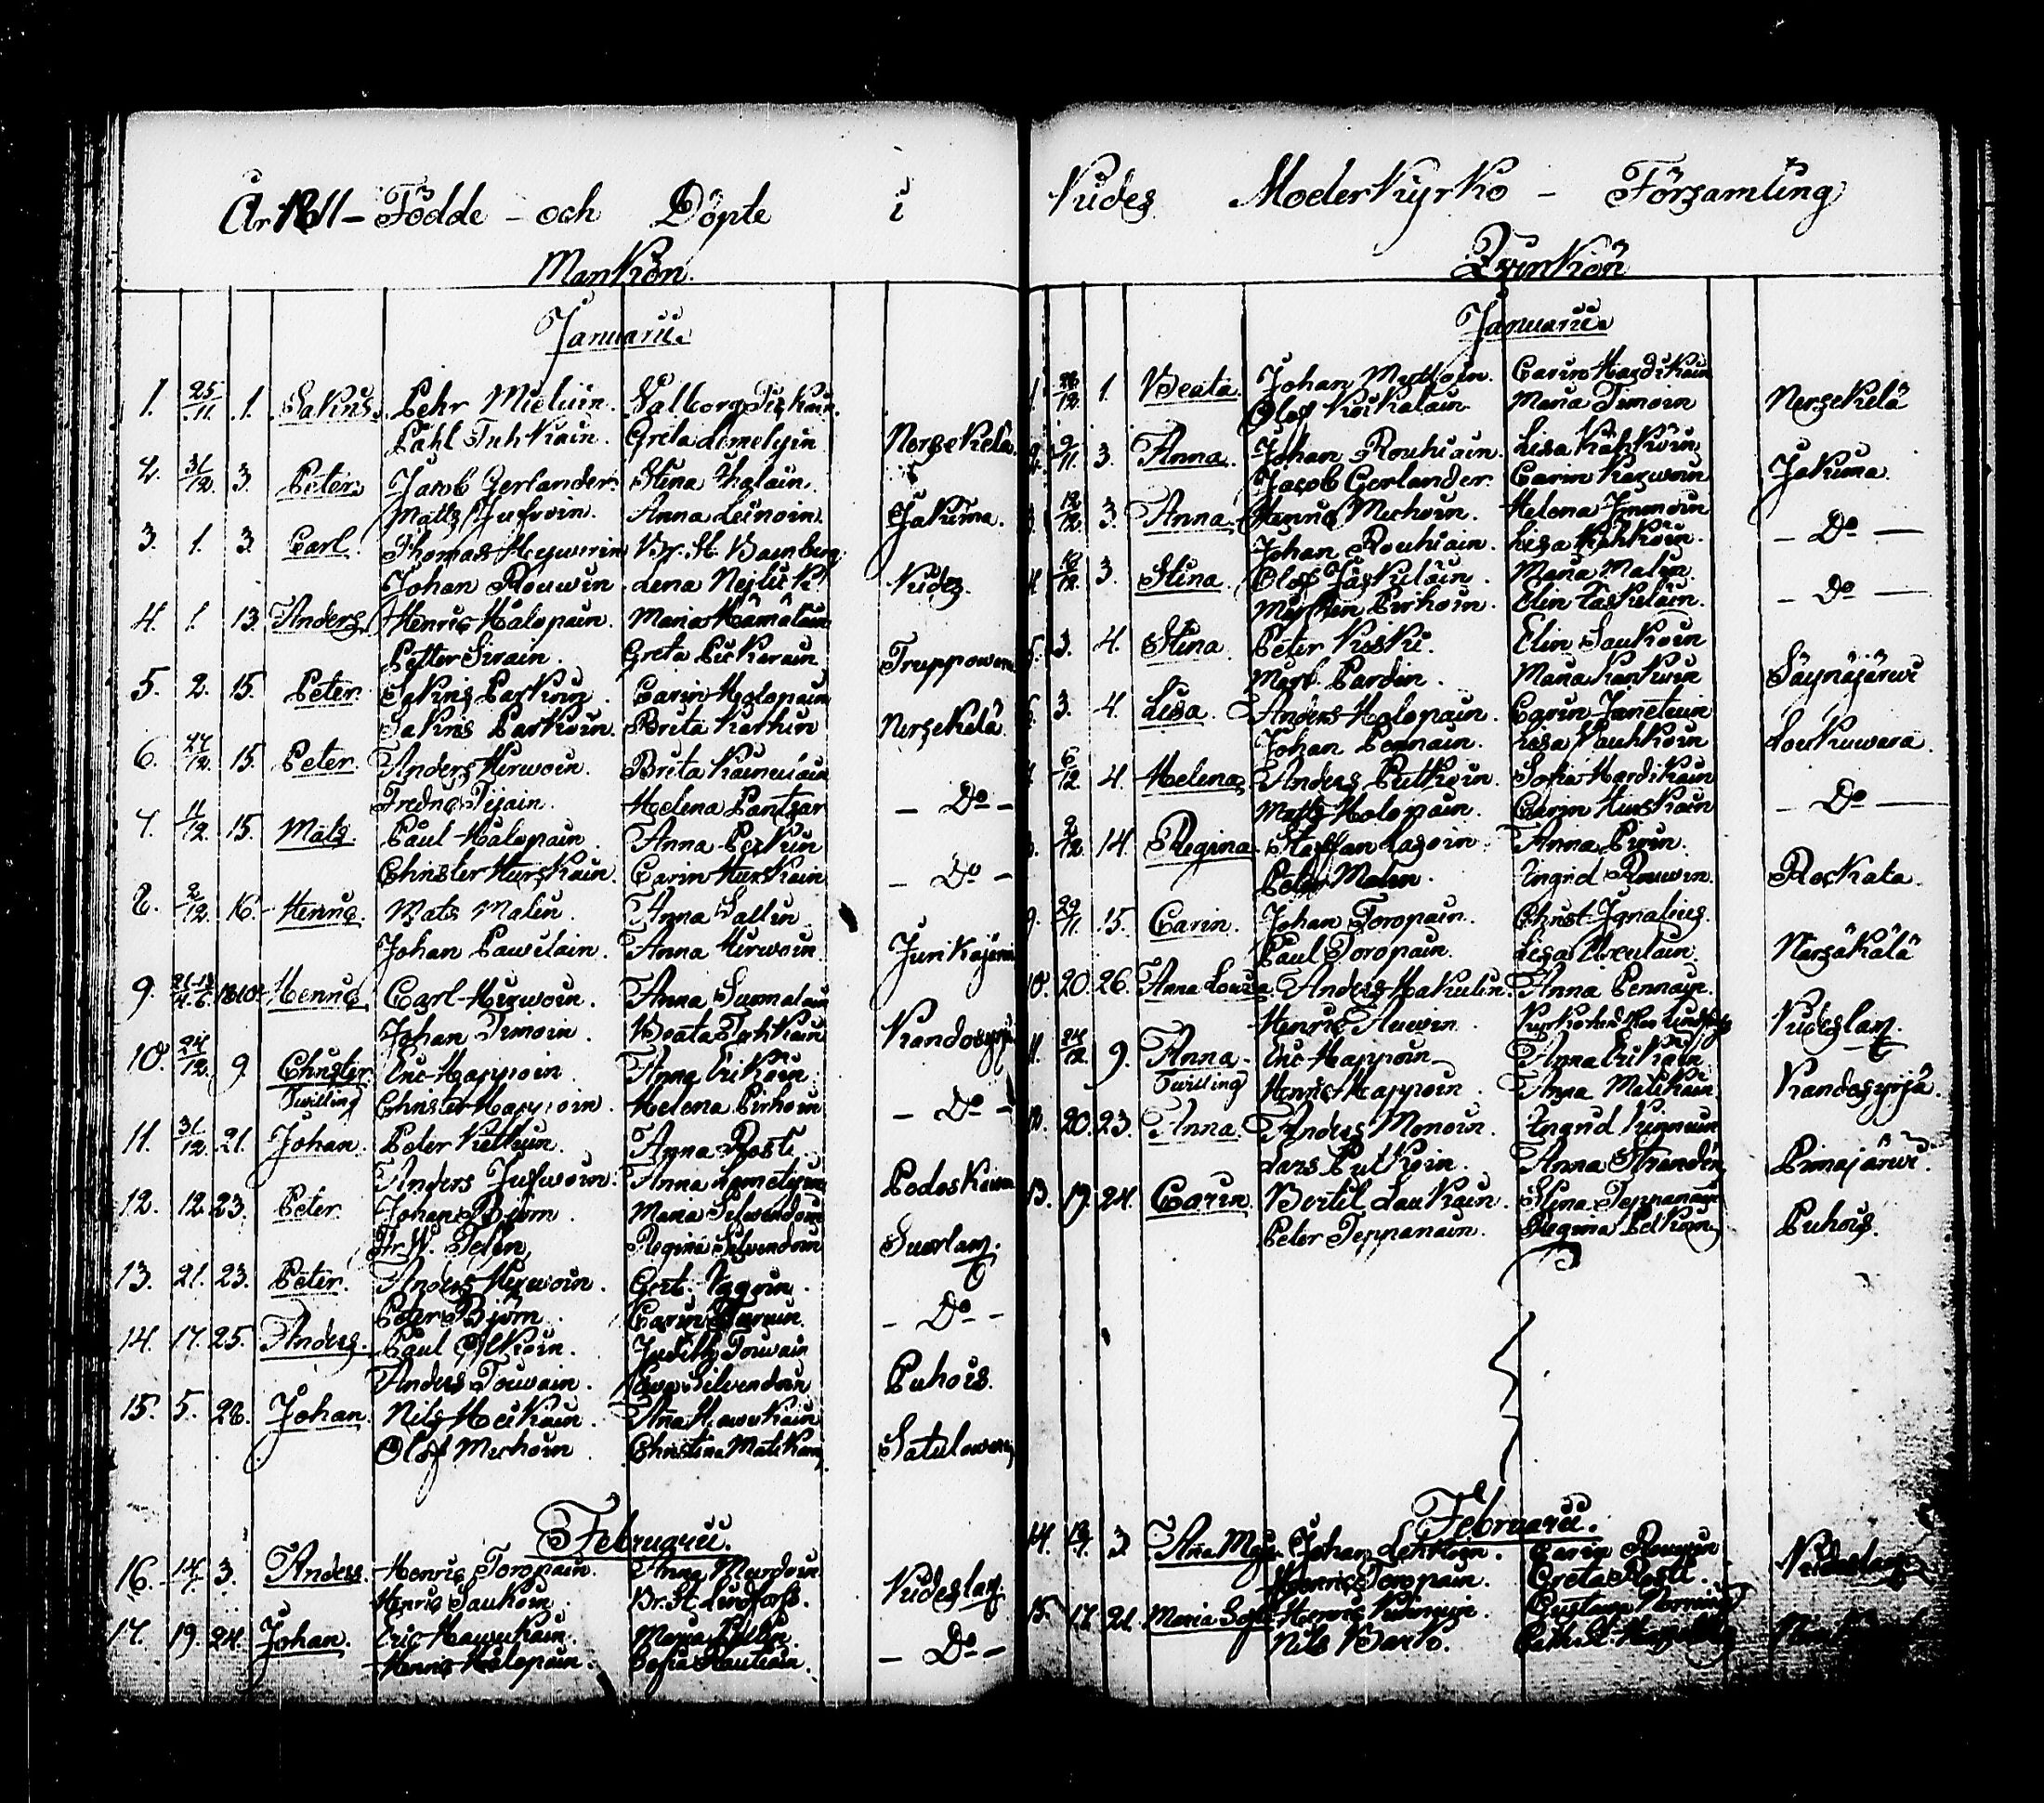 År 1811 - Födde - och Döpte i
Mankön.
Januarii.
1. 25/11. 1. Sakris. Pehr Mieluin. Valborg Tiskain.
Påhl Tuhkain. Greta Lemelyin Nersekelä.
2. 31/12. 3. Peter. Jacob Gerlander. Stina Ihalain.
Matts Jufvoin. Anna Leinoin. Jakuma.
3. 1. 3. Carl. Thomas Heywerin Br. H. Bamberg.
Johan Rouwin. Lena Nejlick. Nides.
4. 1. 13. Anders. Henric Halopain. Maria Hämäläin
Petter Sirain. Greta Pickarain Truppowara
5. 2. 15. Peter. Sakris Parkuin Carin Holopain
Sakris Parkoin. Brita Karhuin Nersekelä
6. 27/12. 15. Peter. Anders Hirwoin. Brita Kainulain
Fredric Tijain. Helena Pantsar - Do -
7. 4/12. 15. Mats. Paul Halopain. Anna Peckuin
Christer Hurskain. Carin Hurskain - Do -
8. 2/12. 16. Henric. Mats Malin. Anna Sallin
Johan Pawilain. Anna Hirwoin. Jurikajärvi
9. Henric Carl Hirwoin. Anna Surmalain
Johan Timoin. Beata Tuhkain Kandosyrjä
10. 24/12. 9. Christer Eric Happoin Anna Erikoin.
Twilling Christer Happoin. Helena Pirhoin - Do -
11. 31/12. 21. Johan. Peter Kettuin. Anna Rosti.
Anders Jufwoin. Anna Lemetyin Podoskawara
12. 12. 23. Peter. Johan Björn. Maria Silwendoin
Regina Silvendoin Suorlax.
13. 21. 23. Peter. Anders Hirwoin. Gert. Väyrin.
Peter Björn. Carin Turuin. - Do -
14. 17. 25. Anders. Paul Ilkoin. Judith Toiwain
Anders Toiwain. Eva Silvendoin Puhois.
15. 5. 28. Johan. Nils Heiskain. Anna Hawukain
Olof Mihoin Christina Matikain Satulowara
Februarii.
16. 14/1 3. Anders. Henric Toropain. Anna Murdoin
Henric Saukoin. Br. H. Lindfors. Nideslax.
17. 19. 24. Johan. Eric Hawukain. Maria
Henric Halopain. Sofia Rautiain. - Do -
Nides Moderkyrko - Församling
Qvinkön
Januarii.
1. 28/12. 1. Beata. Johan Mutkoin. Carin Hardikain
Olof Koikalain Maria Timoin Nersekelä
2. 9/11. 3. Anna. Johan Rouhiain. Lisa Kähköin
Jacob Gerlander. Carin Karwoin Jakuma.
3. 12/12. 3. Anna. Henric Mihoin. Helena Immoin
Johan Rouhiain. Lisa Kähköin. - Do -
4. 18/12. 3. Stina. Olof Jäskeläin. Maria Malin.
Mårten Pirhoin. Elin Jäskeläin. - Do -
5. 3. 4. Stina Peter Kiiski. Elin Saukoin
Mart. Pardin. Maria Kankuin Säynäjärwi
6. 3. 4. Lisa. Anders Holopain. Carin Janetuin
Johan Pennain. Lisa Vauhkoin Loukuwara.
7. 6/12 4. Helena. Anders Putkoin. Sofia Hardikain
Matts Holopain. Carin Hurskain - Do -
8. 2/12 14. Regina. Staffan Lasoin. Anna Piroin.
Peter Malin. Ingrid Rouwin. Rockala.
9. 29/11. 15. Carin. Johan Toropain. Christ. Ignatius.
Paul Toropain. Lisa Näräkälä
10. 20. 26. Anna Lovisa Anders Hakulin. Anna Pennain.
Henric Auwin. Nideslax.
11. 24/12 9. Anna Eric Happoin Anna Erikäin
Twilling Henric Happoin. Anna Matikain Kandosyrjä.
12. 20. 23. Anna. Anders Monoin. Ingrid Kinnuin
Lars Putkoin. Anna Strandén Pinnajärwi.
13. 19. 24. Carin. Bertil Laukain. Stina Teppanain
Peter Teppanain. Regina Pelkoin Puhois.
Februarii.
14. 3. Johan Lehkoin. Carin Rouwin
Henric Toropain. Greta Rosti. Nideslax
15. 17. 21. Maria Sofia Henric
Nils Bark.